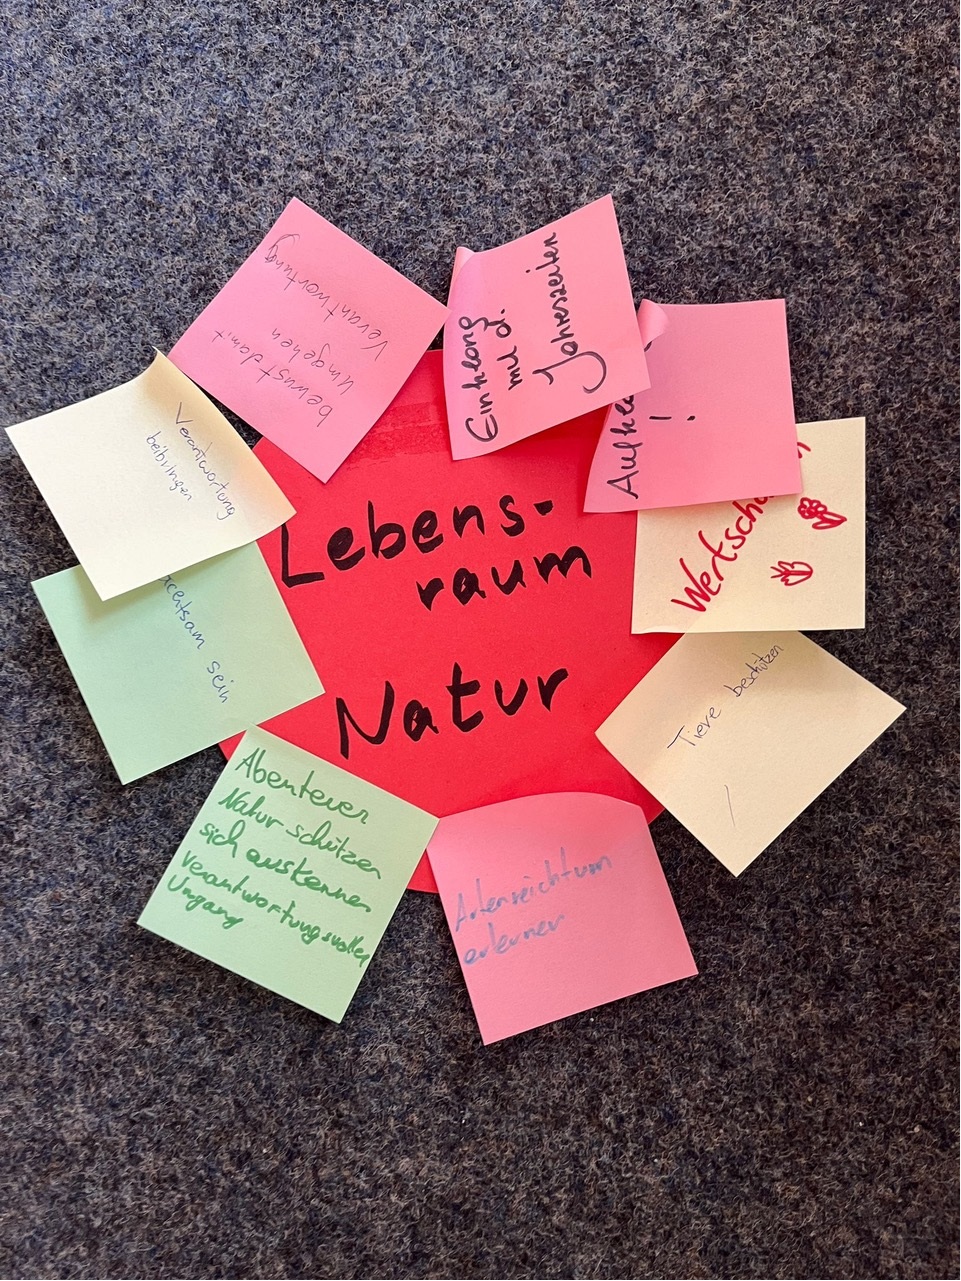 Lebens-
raum
Natur
Einklang
mit d.
Jahreszeiten
!
Tiere beschützen
Artenreichtum
erlernen
Abenteuer
Natur schützen
sich auskennen
verantwortungsvoller
Umgang
achtsam sein
Verantwortung
beibringen
bewust damit
umgehen
Verantwortung